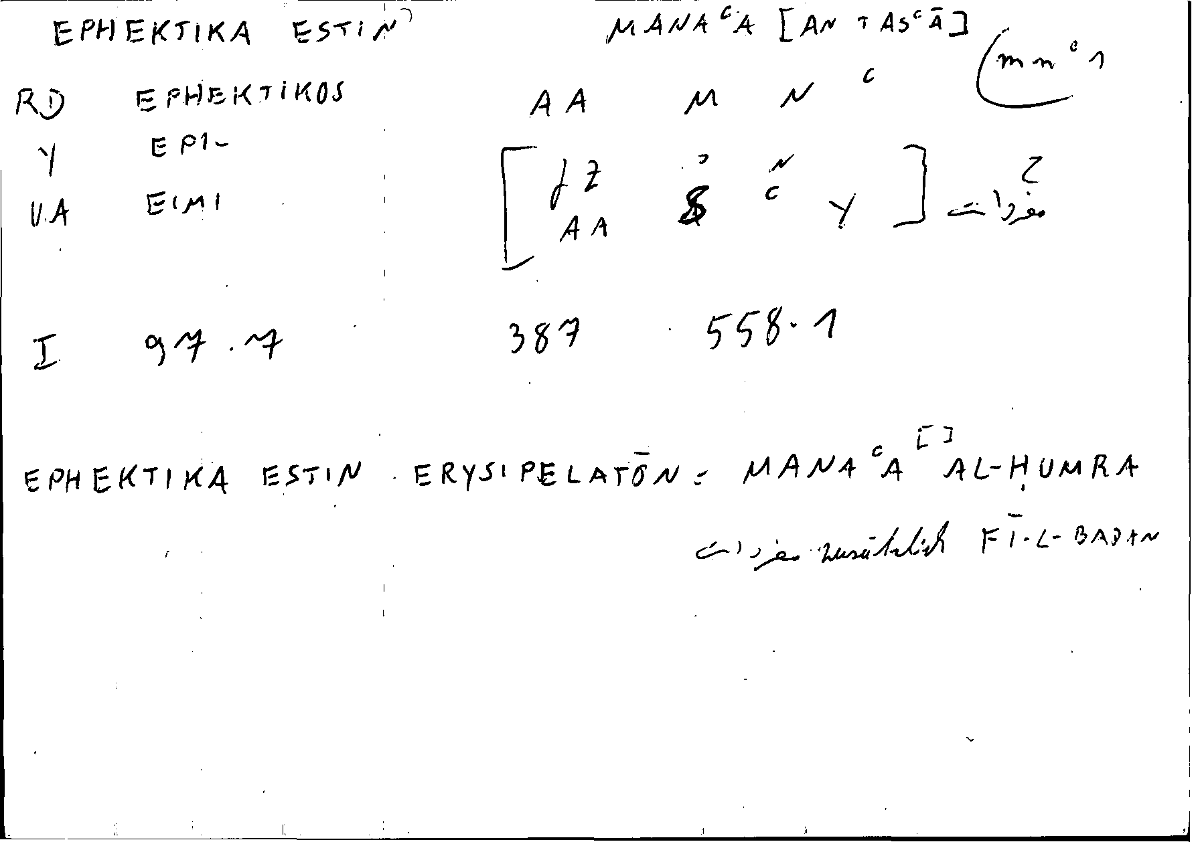 EPHEKTIKA ESTIN MANAᶜA [AN TASᶜĀ] (mnᶜ 1
RD EPHEKTIKOS AA M N ᶜ
Y EPI-
[ J Z ʾ N
UA EIMI AA S ᶜ Y ] مفردات ح
I 97.7 387 558.1
EPHEKTIKA ESTIN ERYSIPELATŌN = MANAᶜA [ ] AL-ḤUMRA
مفردات zusätzlich FĪ-L-BADAN